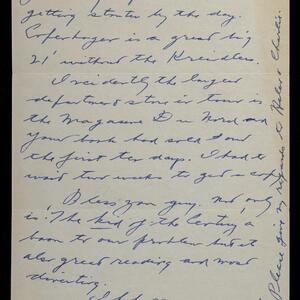 getting stouter by the day.
Copenhagen is a great big
21' without the Kreidlers.
Incidently the largest
department store in town is
the Magasin D u Nord and
your book had sold out
the first ten days. I had to
wait two weeks to get a copy
Bless you guy. Not only
is 'The kind of the Century' a
boon to our problem but it
also great reading and most
diverting.
Please give my regards to Robert Charlie.